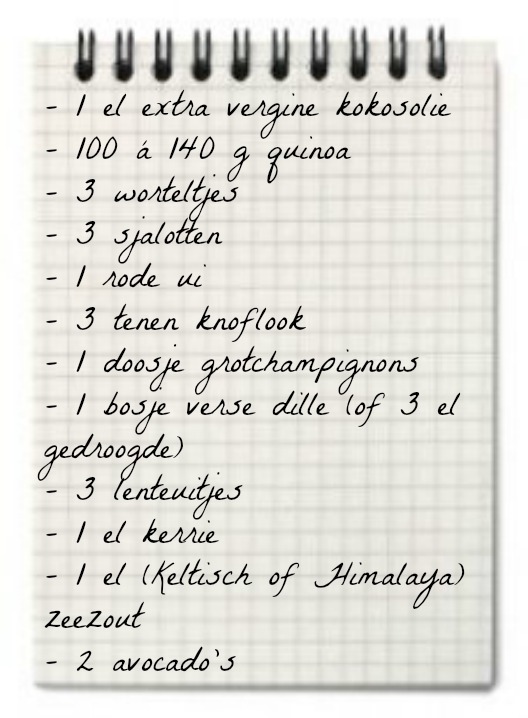 - 1 el extra vergine kokosolie
- 100 á 140 g quinoa
- 3 worteltjes
- 3 sjalotten
- 1 rode ui
- 3 tenen knoflook
- 1 doosje grotchampignons
- 1 bosje verse dille (of 3 el
gedroogde)
- 3 lenteuitjes
- 1 el kerrie
- 1 el (Keltisch of Himalaya)
zeezout
- 2 avocado's